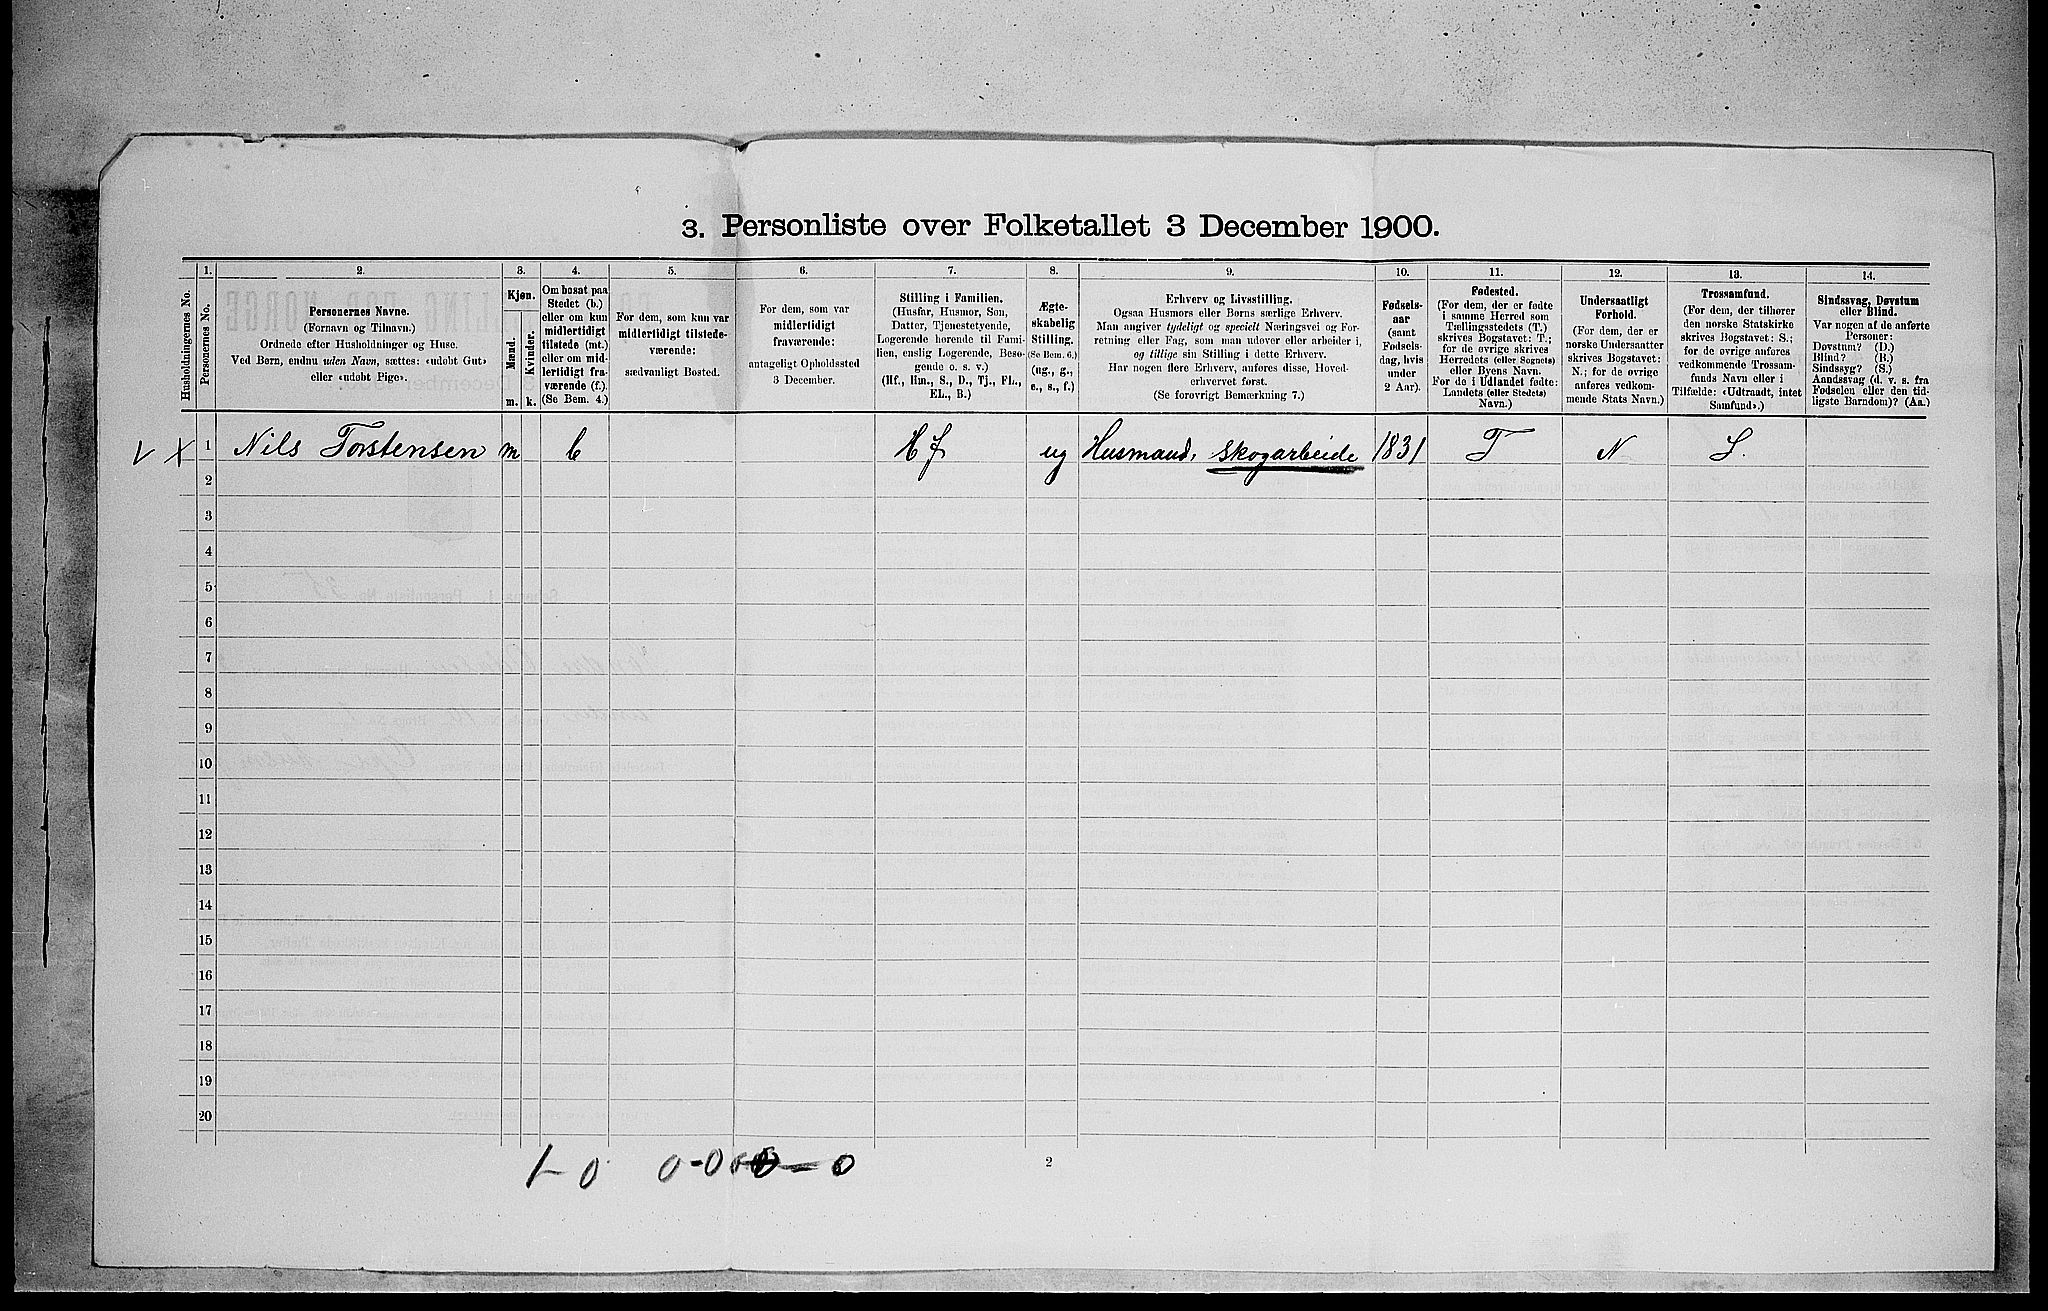 3. Personliste over Folketallet 3 December 1900.
Husholdningernes No.
1.
Personernes No.
2.
Personernes Navne.
(Fornavn og Tilnavn.)
Ordnede efter Husholdninger og Huse.
Ved Børn, endnu uden Navn, sættes: «udøbt Gut»
eller «udøbt Pige».
3.
Kjøn.
Mænd.
Kvinder.
m.
k.
4.
Om bosat paa
Stedet (b.)
eller om kun
midlertidigt
tilstede (mt.)
eller om mid-
lertidigt fra-
værende (f.)
(Se Bem. 4.)
5.
For dem, som kun var
midlertidigt tilstede-
værende:
sædvanligt Bosted.
6.
For dem, som var
midlertidigt
fraværende:
antageligt Opholdssted
3 December.
7.
Stilling i Familien.
(Husfar, Husmor, Søn,
Datter, Tjenestetyende,
Logerende hørende til Fami-
lien, enslig Logerende, Besø-
gende o. s. v.)
(Hf., Hm., S., D., Tj., FL.,
EL., B.)
8.
Ægte-
skabelig
Stilling.
(Se Bem. 6.)
(ug., g.,
e., s., f.)
9.
Erhverv og Livsstilling.
Ogsaa Husmors eller Børns særlige Erhverv.
Man angiver tydeligt og specielt Næringsvei og For-
retning eller Fag, som man udøver eller arbeider i,
og tillige sin Stilling i dette Erhverv.
Har nogen flere Erhverv, anføres disse, Hoved-
erhvervet først.
(Se forøvrigt Bemærkning 7.)
10.
Fødsels-
aar
(samt
Fødsels-
dag, hvis
under
2 Aar).
11.
Fødested.
(For dem, der er fødte
i samme Herred som
Tællingsstedets (T.)
skrives Bogstavet: T.;
for de øvrige skrives
Herredets (eller Sognets)
eller Byens Navn.
For de i Udlandet fødte:
Landets (eller Stedets)
Navn.)
12.
Undersaatligt
Forhold.
(For dem, der er
norske Undersaatter
skrives Bogstavet:
N.; for de øvrige
anføres vedkom-
mende Stats Navn.)
13.
Trossamfund.
(For dem, der tilhører
den norske Statskirke
skrives Bogstavet: S.;
for de øvrige anføres
vedkommende Trossam-
funds Navn eller i
Tilfælde: «Udtraadt, intet
Samfund».)
14.
Sindssvag, Døvstum
eller Blind.
Var nogen af de anførte
Personer:
Døvstum? (D.)
Blind? (B.)
Sindssyg? (S.)
Aandssvag (d. v. s. fra
Fødselen eller den tid-
ligste Barndom)? (Aa.)
V X 1 Nils Torstensen m b Hf ug Husmand, skogarbeide 1831 T N S.
2
3
4
5
6
7
8
9
10
11
12
13
14
15
16
17
18
19
20
1-0 0-0 0-0
2